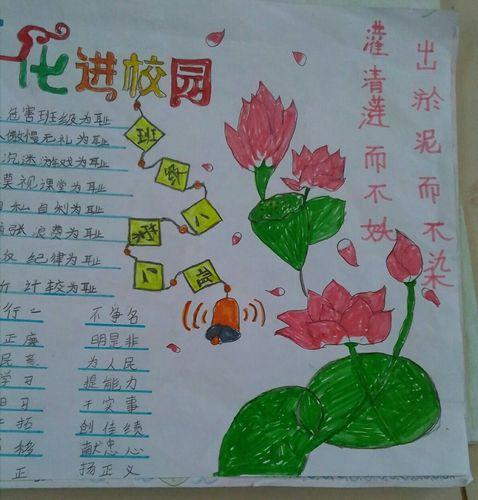 化进校园
危害班级为耻
傲慢无礼为耻
沉迷游戏为耻
漠视课堂为耻
私自利为耻
张浪费为耻
纪律为耻
计较为耻
班级八荣八耻
出於泥而不染
灌清莲而不妖
行一 不争名
正廉 明是非
民意 为人民
学习 提能力
习 干实事
拓 创佳绩
移 献忠心
正 扬正义